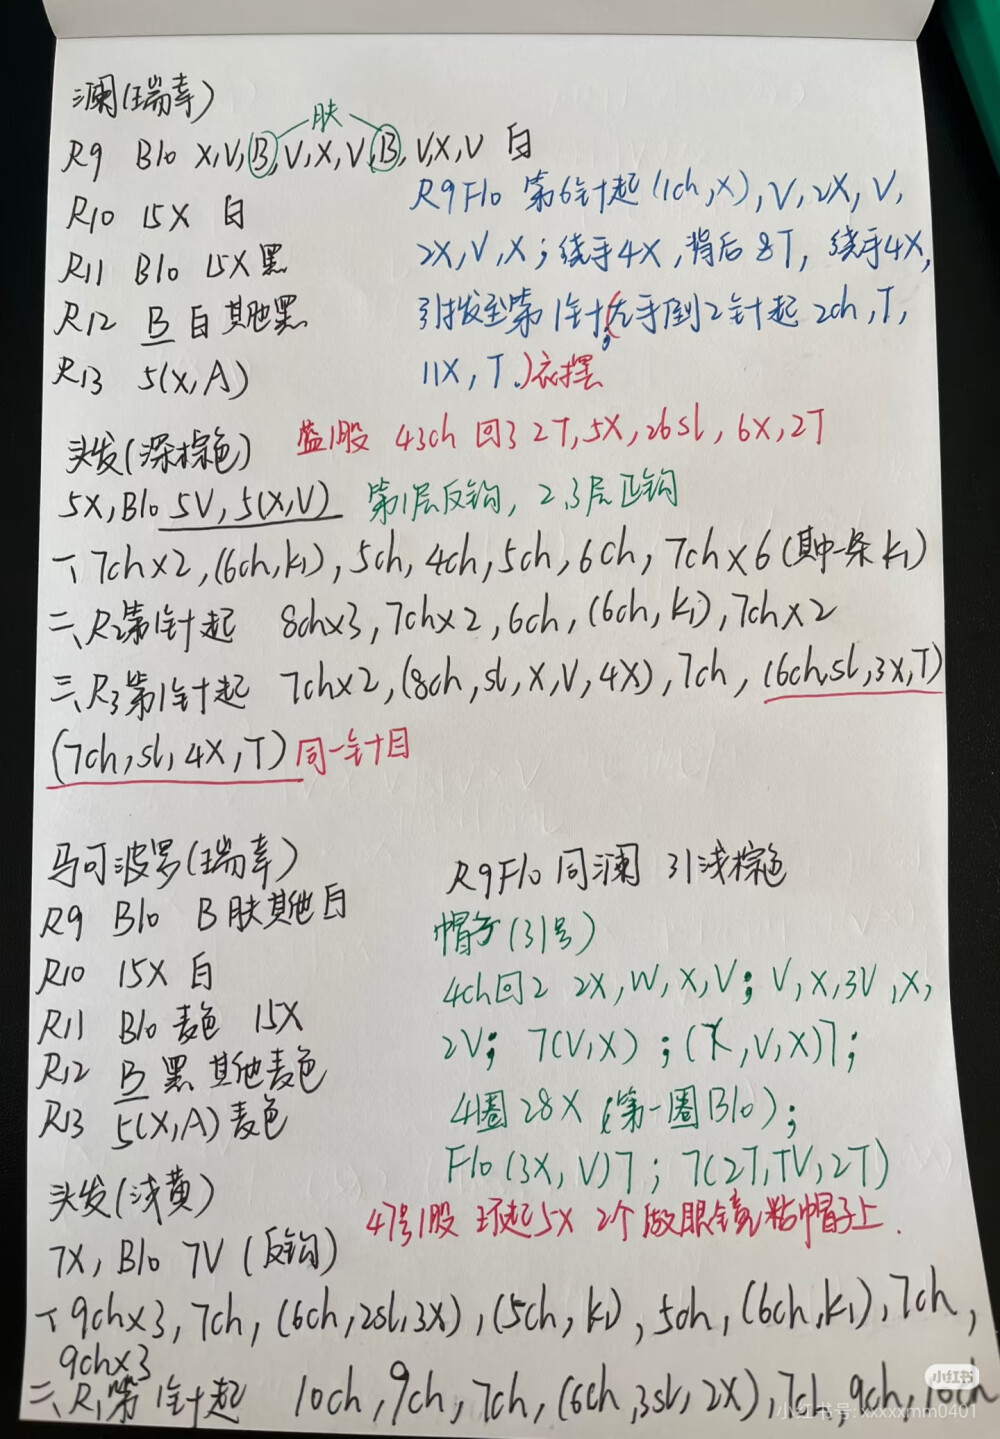 澜(瑞幸)
肤
R9 Blo X,V,B,V,X,V,B,V,X,V 白
R10 15X 白
R11 Blo 15X 黑
R12 B 白 其他黑
R13 5(X,A)
R9 Flo 第6针起(1ch,X),V,2X,V,
2X,V,X;绕手4X,背后8T,绕手4X,
引拔至第1针;(左手倒2针起 2ch,T,
11X,T.)衣摆
头发(深棕色)
蓝1股 43ch 回3 2T,5X,26sl,6X,2T
5X,Blo 5V,5(X,V) 第1层反钩,2.3层正钩
一、7ch×2,(6ch,k₁),5ch,4ch,5ch,6ch,7ch×6(其中一条k₁)
二、R2第1针起 8ch×3,7ch×2,6ch,(6ch,k₁),7ch×2
三、R3第1针起 7ch×2,(8ch,sl,X,V,4X),7ch,(6ch,sl,3X,T)
(7ch,sl,4X,T)同一针目
马可波罗(瑞幸)
R9 Blo B肤其他白
R10 15X 白
R11 Blo 麦色 15X
R12 B 黑 其他麦色
R13 5(X,A)麦色
R9Flo 同澜 引浅棕色
帽子(31号)
4ch回2 2X,W,X,V;V,X,3V,X,
2V;7(V,X);(X,V,X)7;
4圈28X(第一圈Blo);
Flo(3X,V)7;7(2T,TV,2T)
47号1股 环起5X 2个做眼镜粘帽子上.
头发(浅黄)
7X,Blo 7V(反钩)
一、9ch×3,7ch,(6ch,2sl,3X),(5ch,k₁),5ch,(6ch,k₁),7ch,
9ch×3
二、R1第1针起 10ch,9ch,7ch,(6ch,3sl,2X),7ch,9ch,10ch
小红书
小红书号:xxxxxmm0401